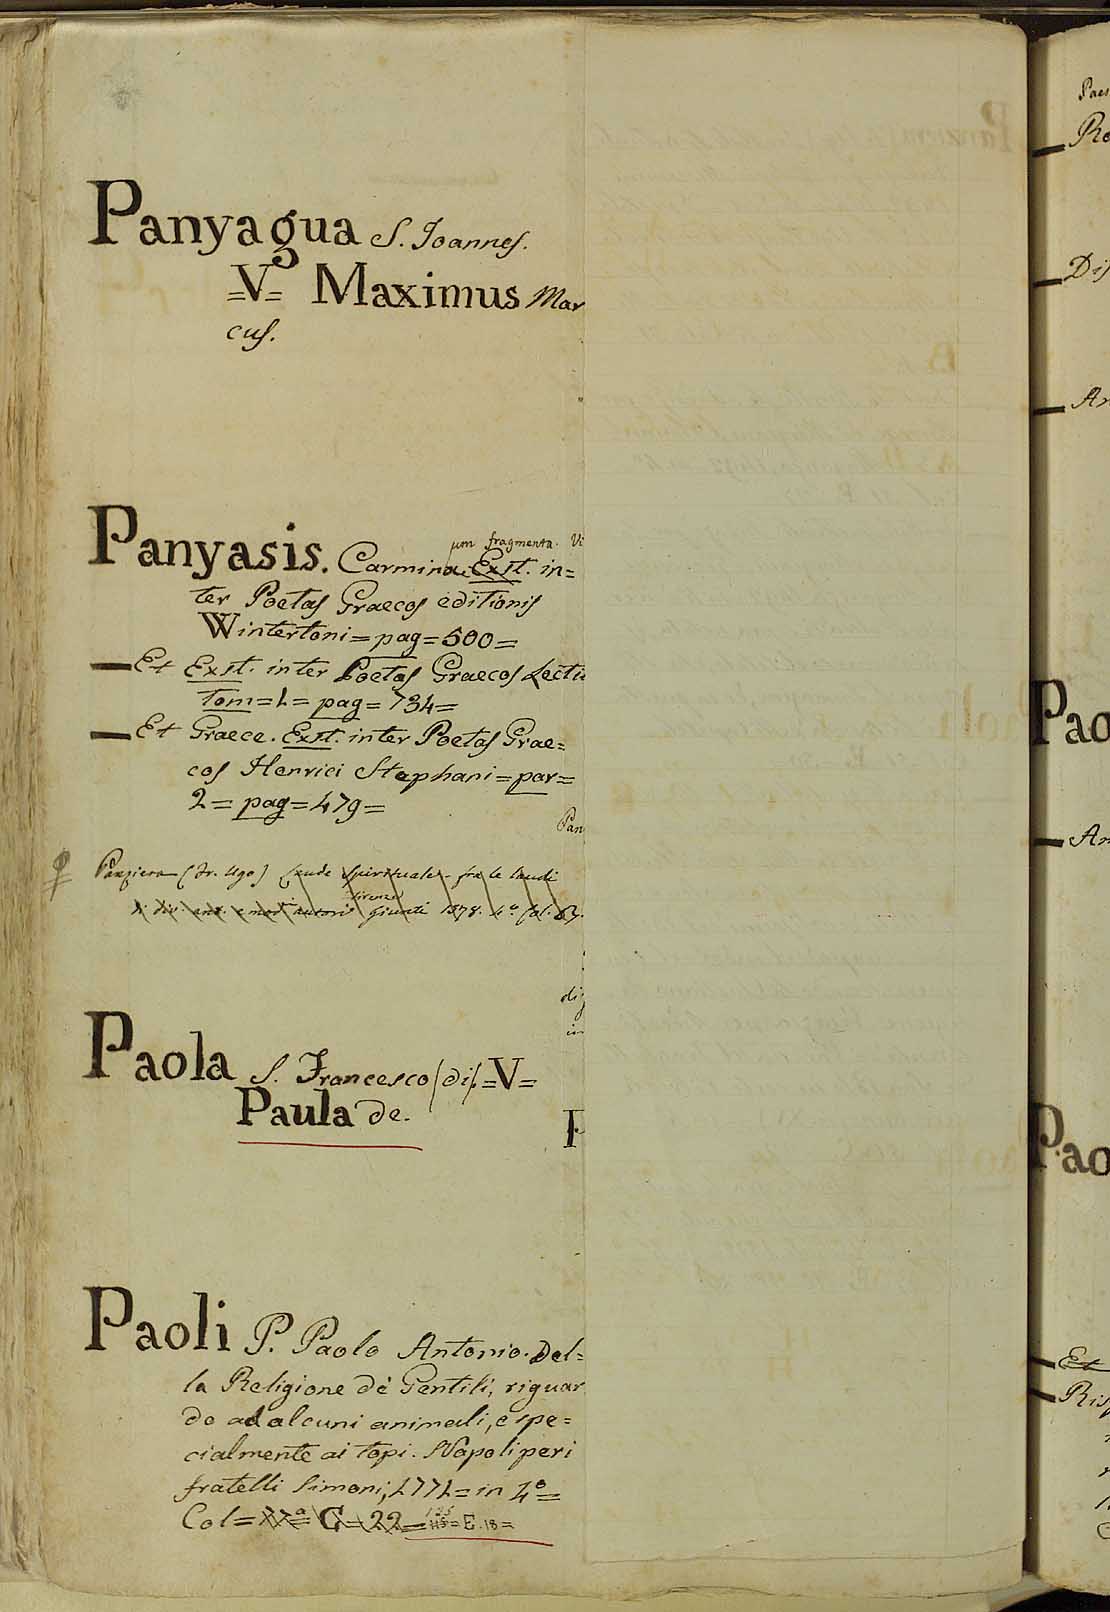 Panyagua S. Joannes.
=V= Maximus Mar
cus.
um fragmenta. Vi
Panyasis. Carmina Exst. in=
ter Poetas Graecos editionis
Wintertoni = pag = 500 =
Et Exst. inter Poetas Graecos Lectii
Tom = 1 = pag = 734 =
Et Graece. Exst. inter Poetas Grae=
cos Henrici Stephani = par =
2 = pag = 479 =
Pan
Panziera (Fr. Ugo) Laude Spirituale - fra le laudi
di div. ant. e mod. autori Firenze Giunti 1578. 4º Col.
di
in
Paola S. Francesco (di). =V=
Paula de.
P
Paoli P. Paolo Antonio. Del=
la Religione de' Gentili, riguar
do ad alcuni animali, e spe=
cialmente ai topi. Napoli per i
fratelli Simoni, 1771 = in 4º =
Col = C = 22 = E. 18 =
Paes
Ro
Dis
An
Pao
An
Pao
Et
Ris